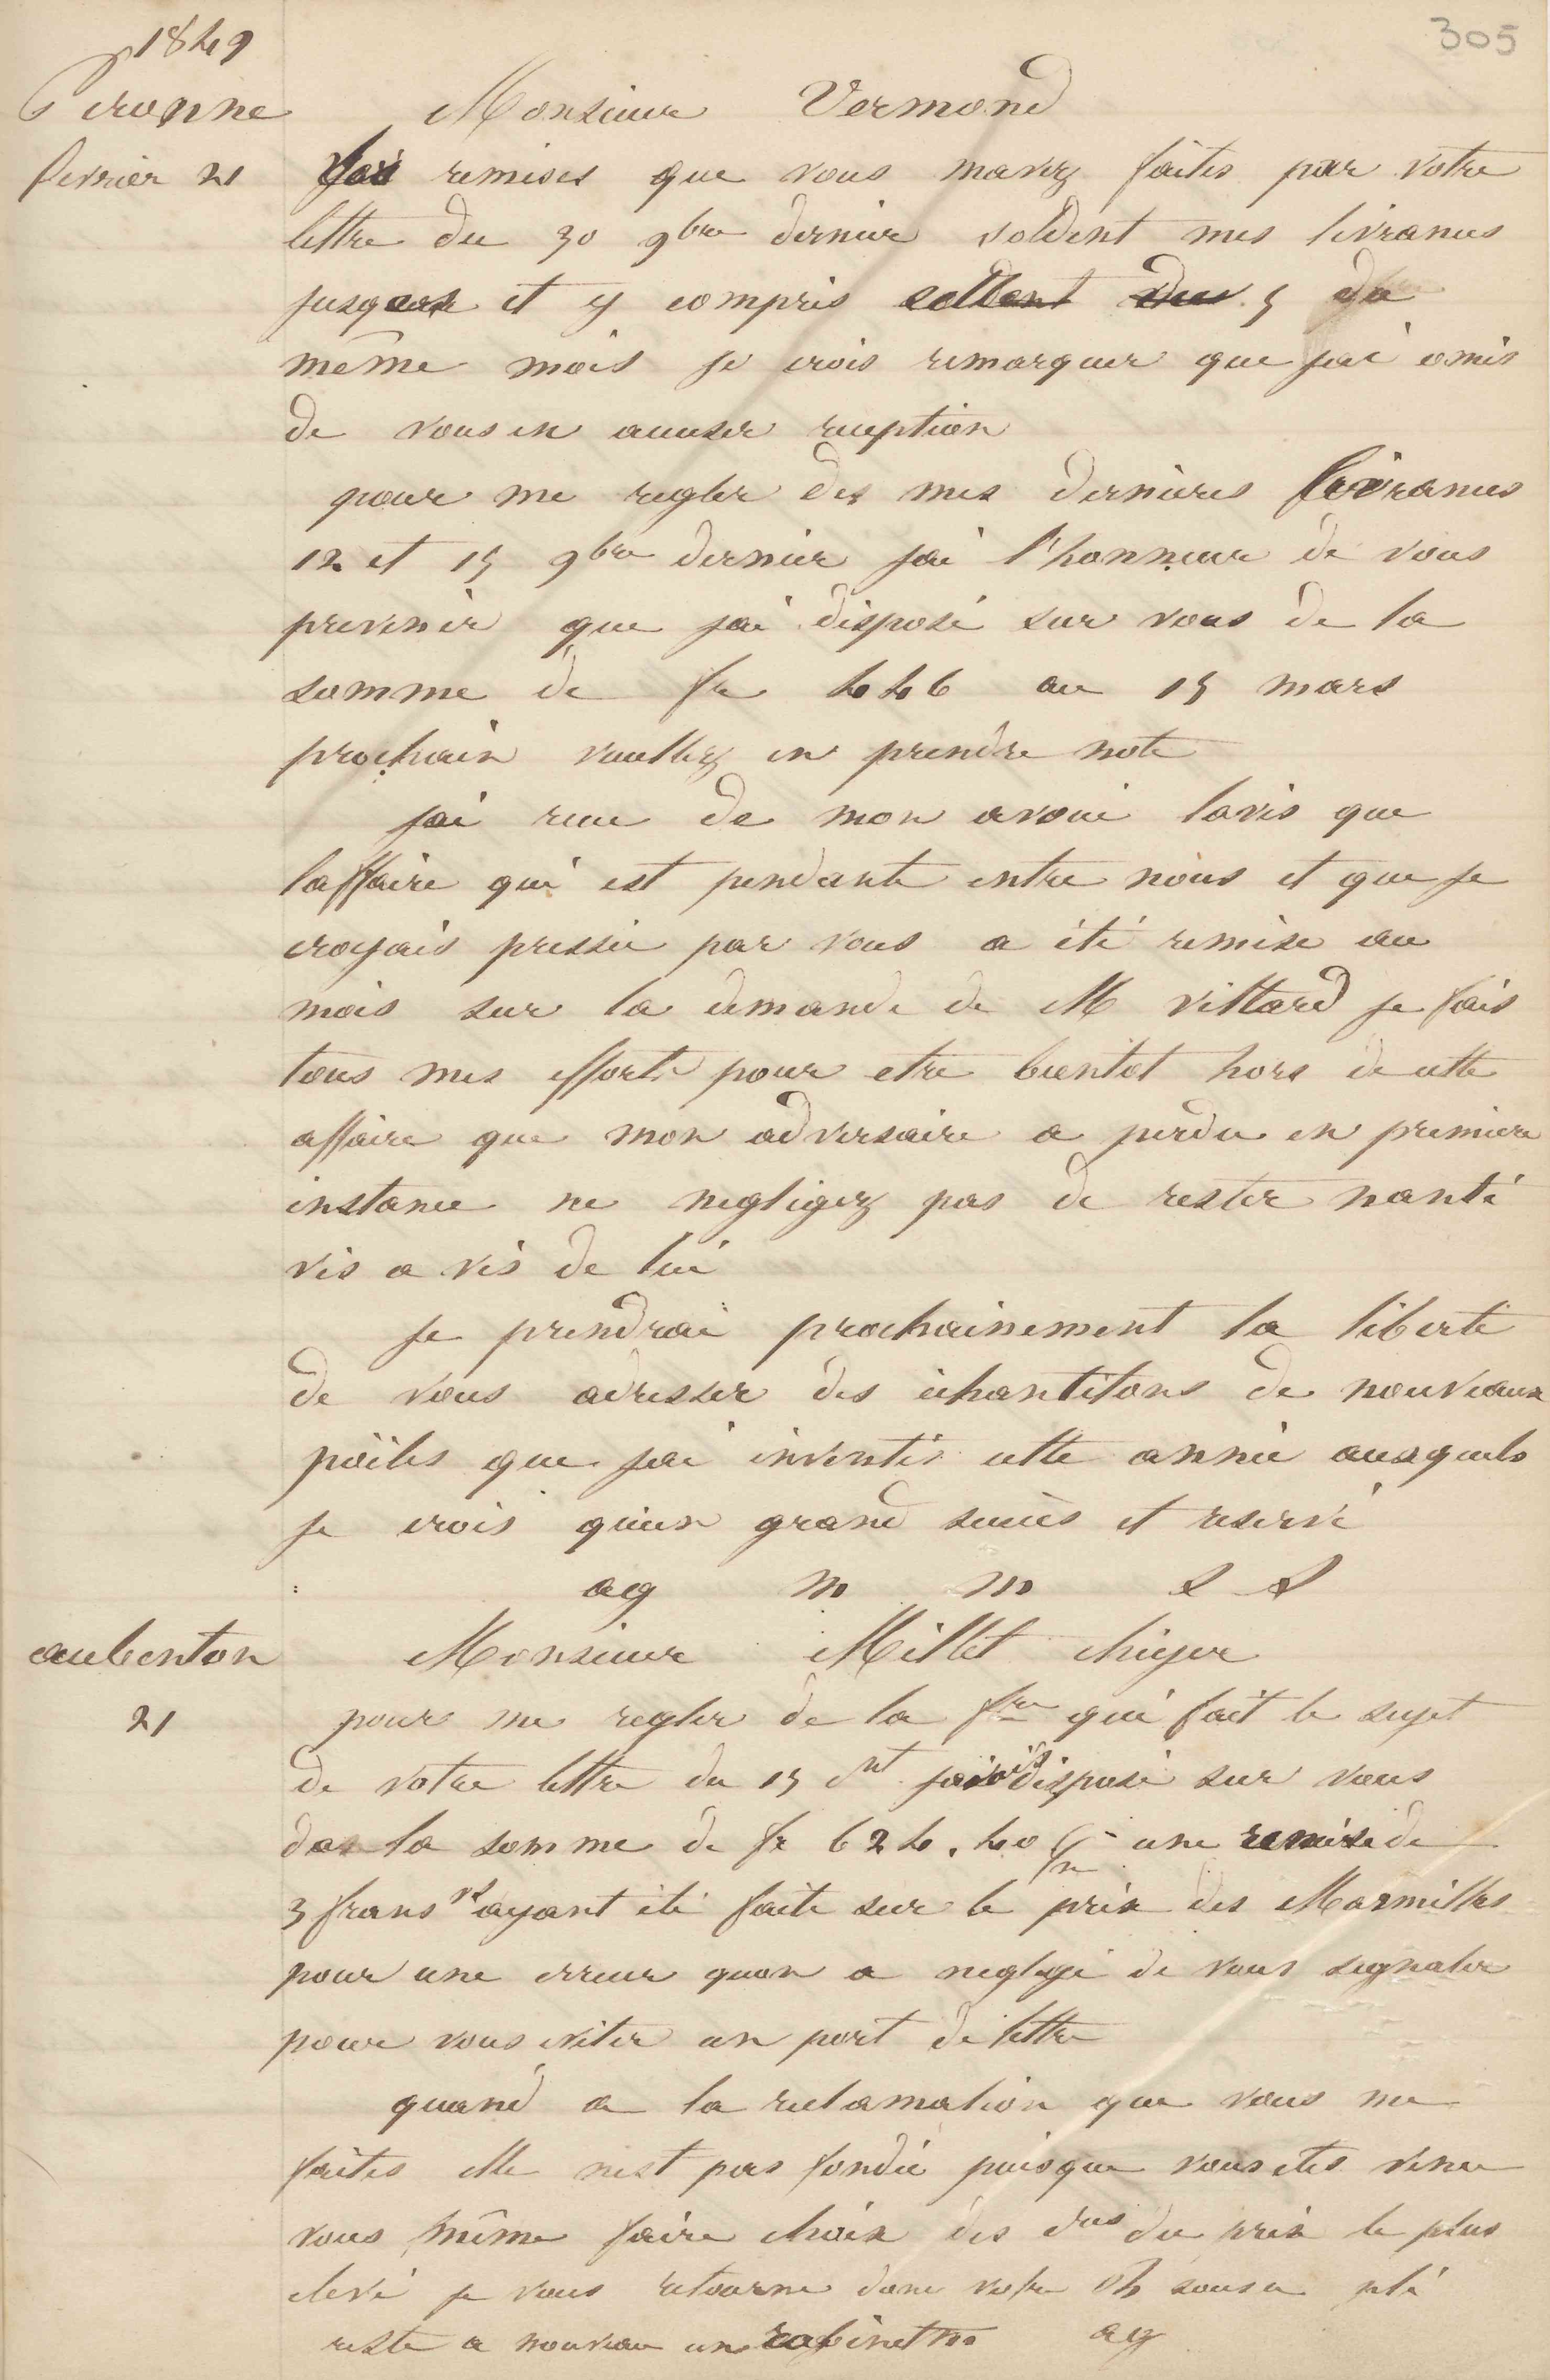 305
1849
Peronne
fevrier 21
Monsieur Vermond
remises que vous mavez faites par votre
lettre du 30 9bre dernier soldent mes livrances
jusques et y compris du 5 du
même mois je crois remarquer que jai omis
de vous en accuser reception
pour me regler des mes dernieres livrances
12 et 15 9bre dernier jai l'honneur de vous
prevenir que jai disposé sur vous de la
somme de fr 446 au 15 mars
prochain veuillez en prendre note
jai recu de mon avoué lavis que
laffaire qui est pendante entre nous et que je
croyais pressée par vous a été remise au
mois sur la demande de M villard je fais
tous mes efforts pour etre bientot hors de cette
affaire que mon adversaire a perdu en premiere
instance ne negligez pas de rester nanti
vis a vis de lui
je prendrai prochainement la liberté
de vous adresser des échantilons de nouveaux
poëles que jai inventés cette année ausquels
je crois quun grand succès et reservé
ag m m s s
aubenton
21
Monsieur Millet
pour me regler de la fre qui fait le sujet
de votre lettre du 15 ct disposé sur vous
de la somme de fr 624.40 une remise de
3 francs ayant été faite sur le prix des Marmittes
pour une erreur quon a negligé de vous signaler
pour vous eviter un port de lettre
quand a la reclamation que vous me
faites elle nest pas fondée puisque vous etes venu
vous même faire choix des du prix le plus
elevé je vous retourne donc votre sous ce pli
reste a nouveau un ag